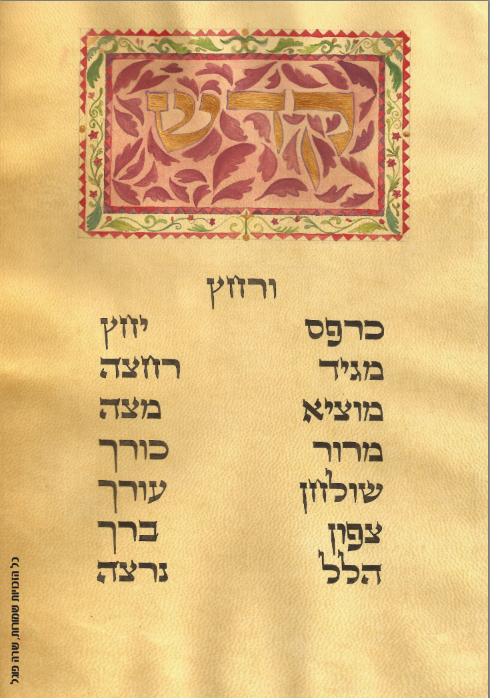 קדש
ורחץ
כרפס יחץ
מגיד רחצה
מוציא מצה
מרור כורך
שולחן עורך
צפון ברך
הלל נרצה
כל הזכויות שמורות, שרה פוגל